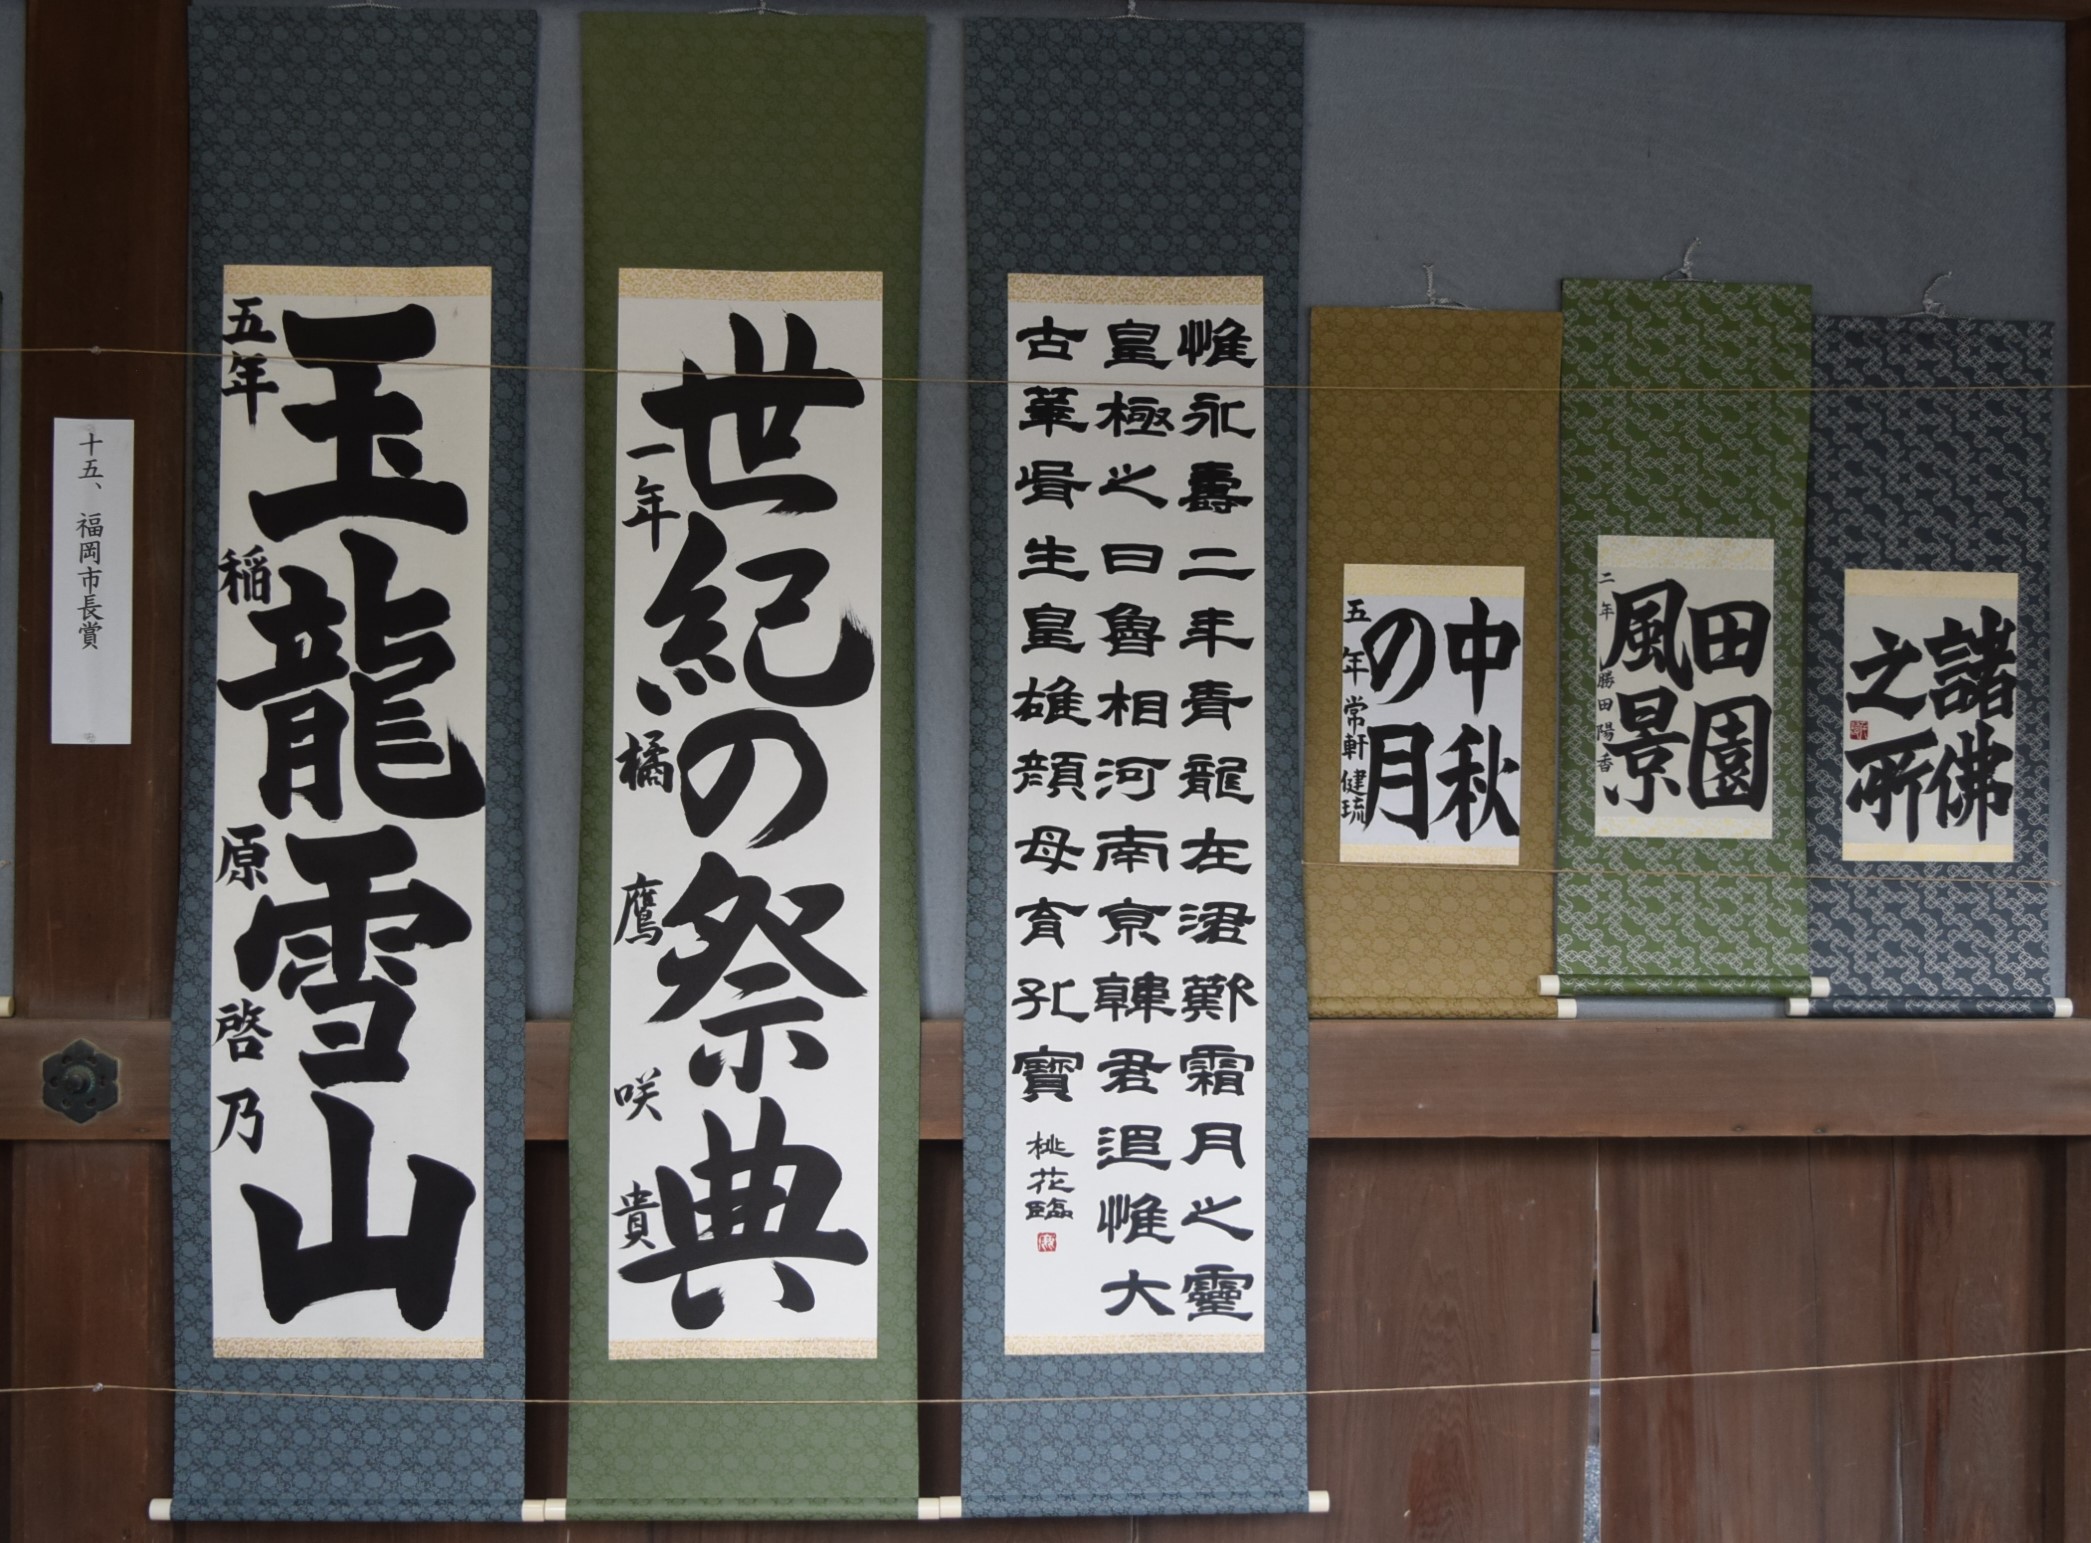 諸佛
之所
田園
風景
二年 勝田陽香
中秋
の月
五年 常軒健琉
惟永壽二年青龍在涒歎霜月之靈
皇極之日魯相河南京韓君追惟大
古華胥生皇雄顔母育孔寶
桃花臨
世紀の祭典
一年 橘鷹咲貴
玉龍雪山
五年 稲原啓乃
十五、福岡市長賞